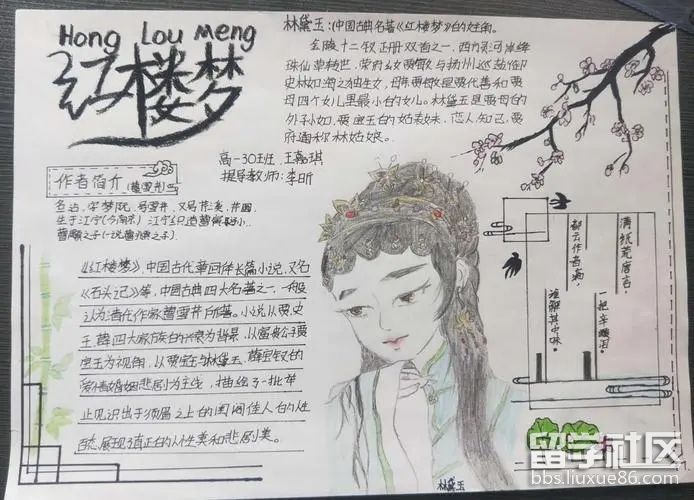 Hong Lou Meng
红楼梦
林黛玉:中国古典名著《红楼梦》的主角。
金陵十二钗正册双首之一,西方灵河岸绛
珠仙草转世,荣府幺女贾敏与扬州巡盐御
史林如海之独生女,母亲贾敏是贾代善和贾
母四个女儿里最小的女儿。林黛玉是贾母的
外孙女,贾宝玉的姑表妹、恋人、知己,贾
府通称林姑娘。
高一30班,王嘉琪
提导教师:李昕
作者简介(曹雪芹)
名沾,字梦阮,号雪芹,又号芹溪,芹圃
生于江宁(今南京)江宁织造曹寅之孙,
曹颙之子(一说曹頫之子)
《红楼梦》,中国古代章回体长篇小说,又名
《石头记》等,中国古典四大名著之一,一般
认为清代作家曹雪芹所著。小说以贾、史、
王、薛四大家族的兴衰为背景,以富贵公子贾
宝玉为视角,以贾宝玉与林黛玉、薛宝钗的
爱情婚姻悲剧为主线,描绘了一批举
止见识出于须眉之上的闺阁佳人的人生
百态,展现了真正的人性美和悲剧美。
满纸荒唐言,
一把辛酸泪。
都云作者痴,
谁解其中味。
林黛玉
留学社区
bbs.liuxue86.com